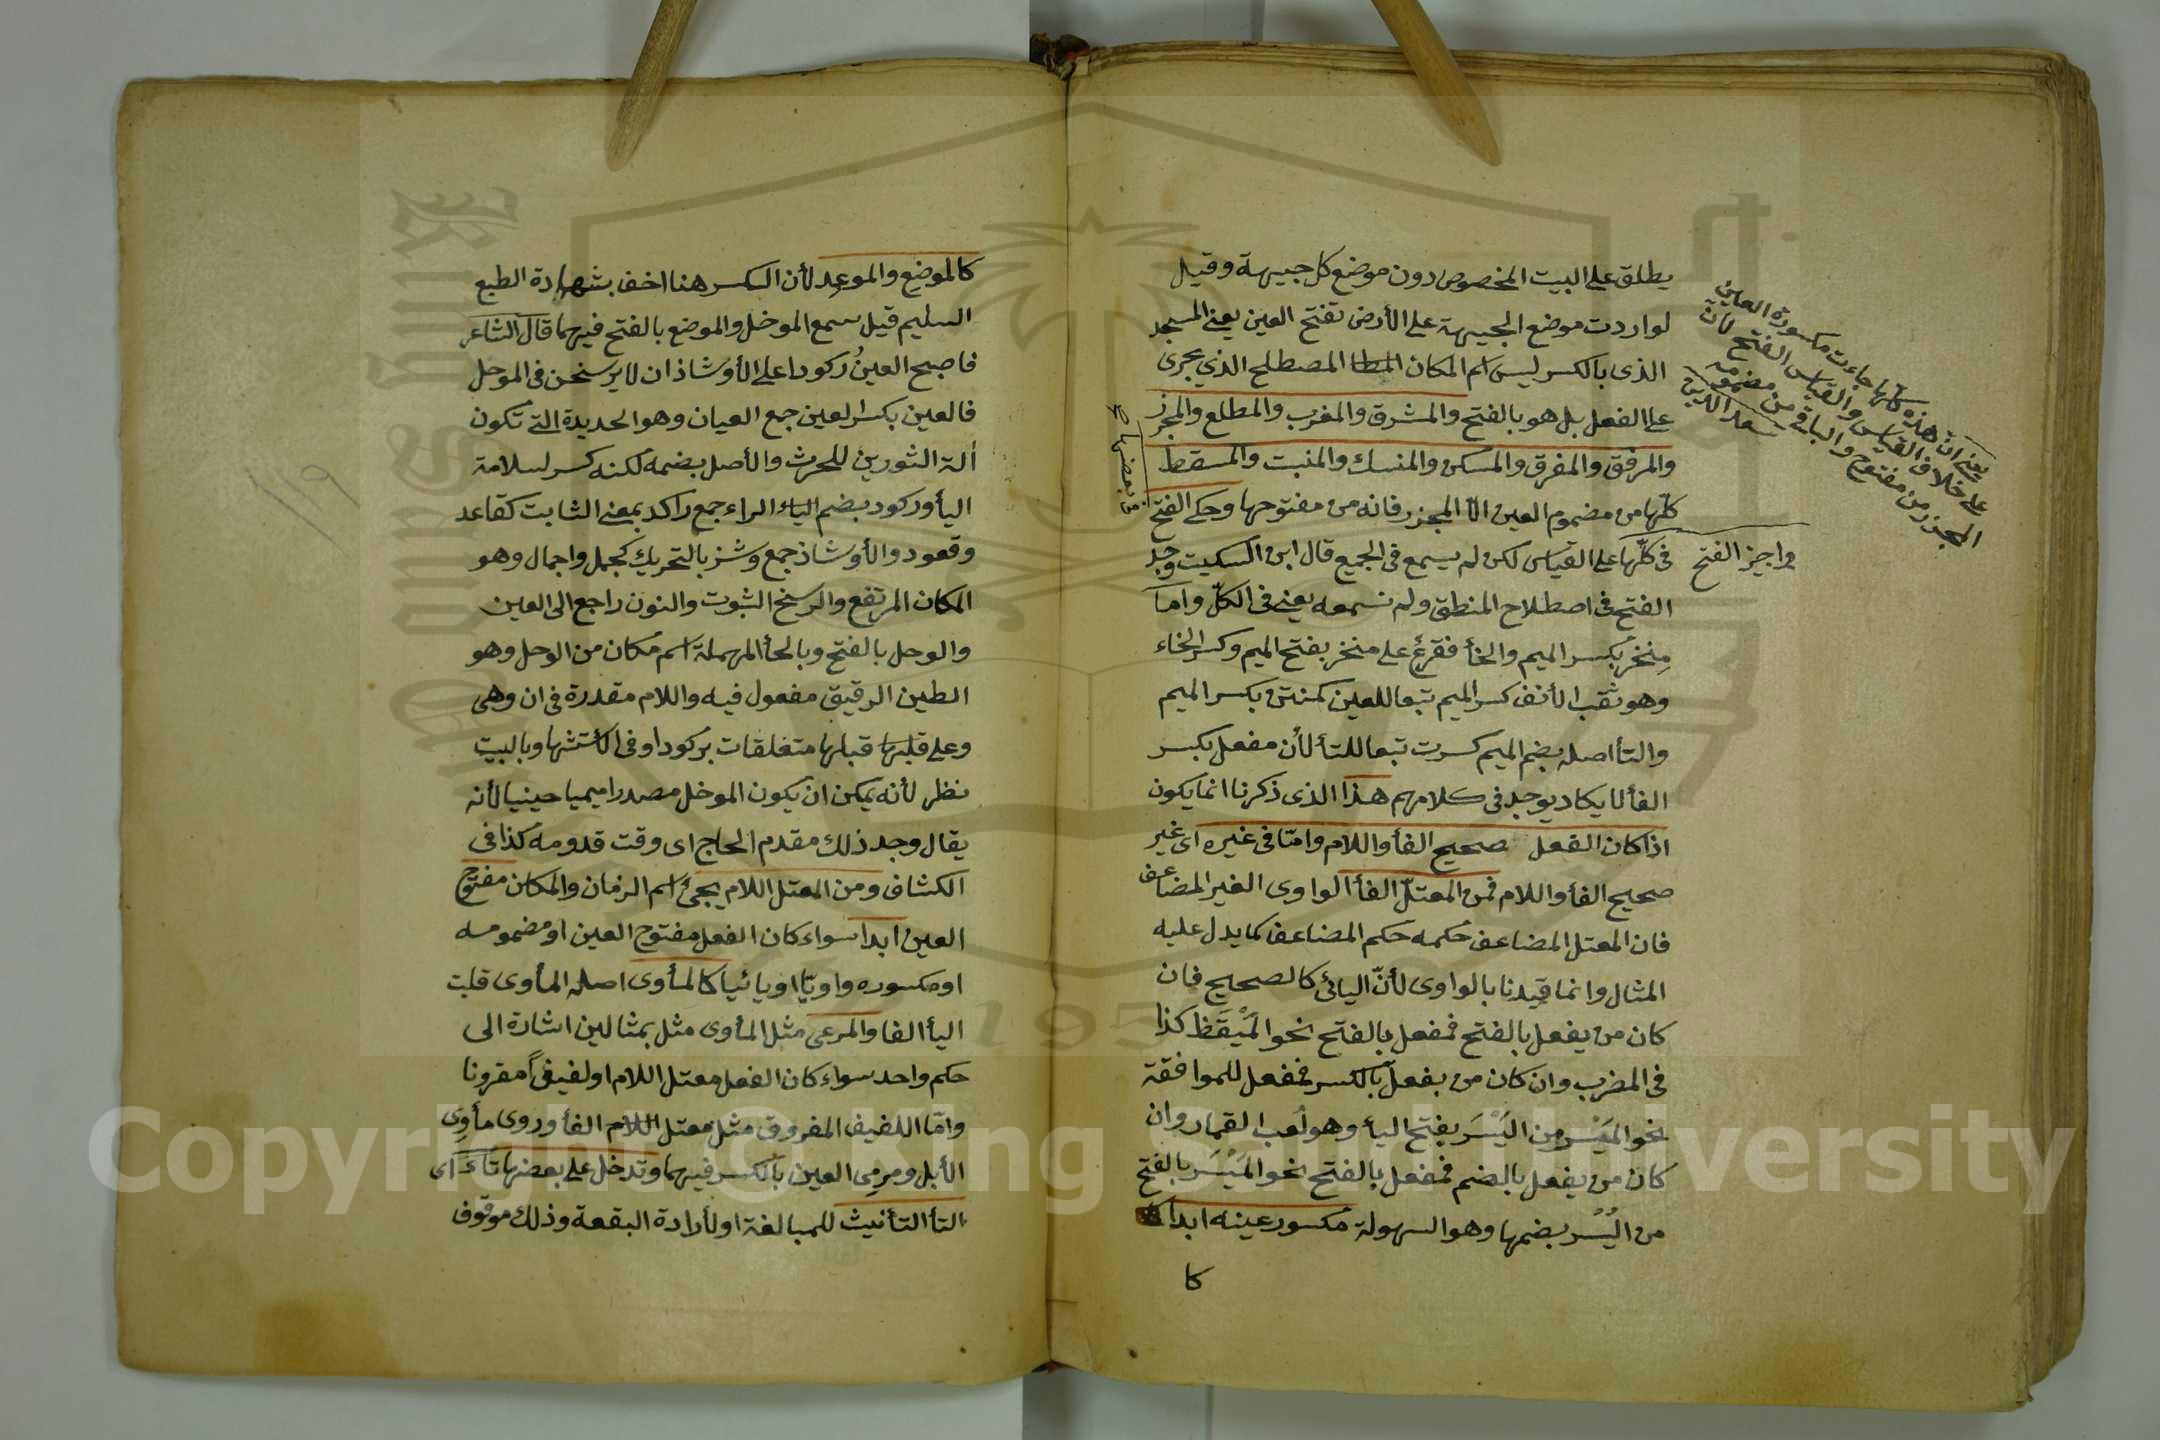 يطلق على البيت المخصوص دون موضع كل جبيهة وقيل
لو اردت موضع الجبيهة على الأرض تفتح العين يعني المسجد
الذى بالكسر ليس اسم المكان المصطلح الذي يجرى
على الفعل بل هو بالفتح والمشرق والمغرب والمطلع والمجزر
والمرفق والمفرق والمسكن والمنسك والمنبت والمسقط
كلّها من مضموم العين الّا المجزر فانه من مفتوحها وحكى الفتح
فى كلّها على القياس لكن لم يسمع فى الجميع قال ابن السكيت وجد
الفتح فى اصطلاح المنطق ولم نسمعه يعنى فى الكلّ واما
مِنخر بكسر الميم والخأ ففرعٌ على منخر بفتح الميم وكسر الخاء
وهو ثقب الأنف كسر الميم تبعا للعين كمنتن بكسر الميم
والتأ اصله بضم الميم كسرت تبعا للتأ لأن مفعل بكسر
الفأ لا يكاد يوجد فى كلامهم هذا الذى ذكرنا انما يكون
اذا كان الفعل صحيح الفأ واللام وامّا فى غيره اى غير
صحيح الفأ واللام فمن المعتلّ الفأ الواوى الغير المضاعف
فان المعتل المضاعف حكمه حكم المضاعف كما يدل عليه
المثال وانما قيدنا بالواوى لأنّ اليائى كالصحيح فان
كان من يفعل بالفتح فمفعل بالفتح نحو المَيْقَظ كذا
فى المضرب وان كان من يفعل بالكسر فمفعل للموافقة
نحو المَيْسِر من اليَسَر بفتح اليأ وهو لعب القمار وان
كان من يفعل بالضم فمفعل بالفتح نحو المَيْسَر بالفتح
من اليُسْر بضمها وهو السهولة مكسور عينه ابدا
كا
يعنى ان هذه كلها جاءت مكسورة العين
على خلاف القياس والقياس الفتح لأن
المجزر من مفتوح والباقى من مضمومه
سعد الدين
واجيز الفتح
من بعضها
كالموضع والموعد لأن الكسر هنا اخف بشهادة الطبع
السليم قيل سمع الموحل والموضع بالفتح فيهما قال الشاعر
فاصبح العينُ ركودا على الأوشاذ ان لا يرسخن فى الموحل
فالعين بكسر العين جمع العيان وهو الحديدة التى تكون
آلة الثورين للحرث والأصل بضمه لكنه كسر لسلامة
اليأ وركود بضم الراء جمع راكد بمعنى الثابت كقاعد
وقعود والأوشاذ جمع وشز بالتحريك كجمل واجمال وهو
المكان المرتفع والرسخ الثبوت والنون راجع الى العين
والوحل بالفتح وبالحأ المهملة اسم مكان من الوحل وهو
الطين الرقيق مفعول فيه واللام مقدرة فى ان وهى
وعلى قبلها متعلقات بركودا وفى الأستشهاد بالبيت
نظر لأنه يمكن ان يكون الموحل مصدرا ميميا حينيا لأنه
يقال وجد ذلك مقدم الحاج اى وقت قدومه كذا فى
الكشاف ومن المعتل اللام يجئ اسم الزمان والمكان مفتوح
العين ابدا سواء كان الفعل مفتوح العين او مضمومه
او مكسوره واويّا او يائيا كالمأوى اصله المأوى قلبت
اليأ الفا والمرعى مثل المأوى مثل بمثالين اشارة الى
حكم واحد سواء كان الفعل معتل اللام او لفيفًا مقرونا
وامّا اللفيف المفروق مثل معتل الفأ وروى مأوِى
الأبل ومرمِى العين بالكسر فيهما وتدخل على بعضها تاءٌ اى
التأ التأنيث للمبالغة او لأرادة البقعة وذلك موقوف
١١٩
Copyright © King Saud University
1957